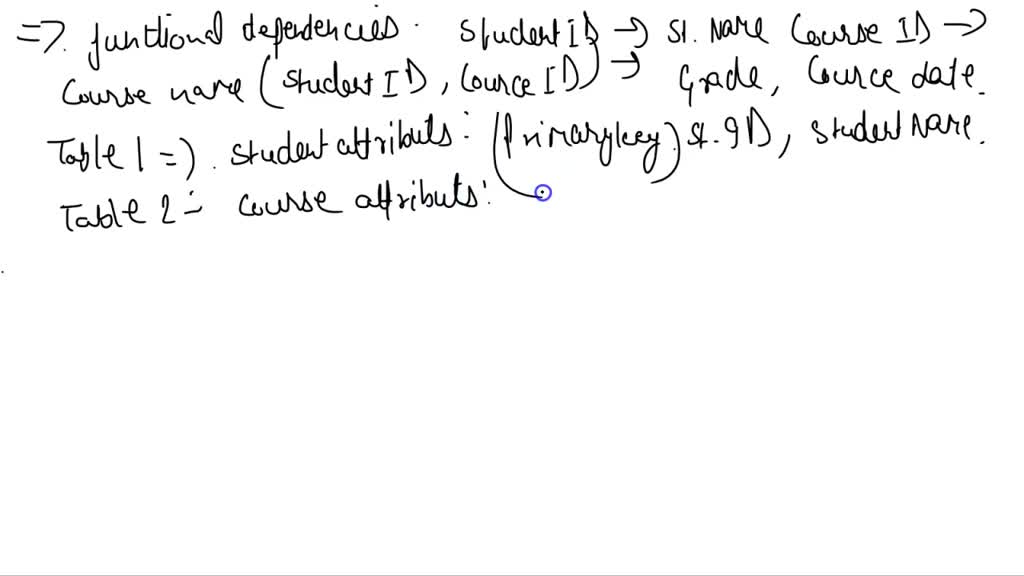 => functional dependencies. Student ID → St. Name Course ID →
Course name (Student ID, Cource ID) → Grade, Cource date.
Table 1 =) . Student attributs: (Primary key) St. ID, Student Name.
Table 2 :- Course attributs: